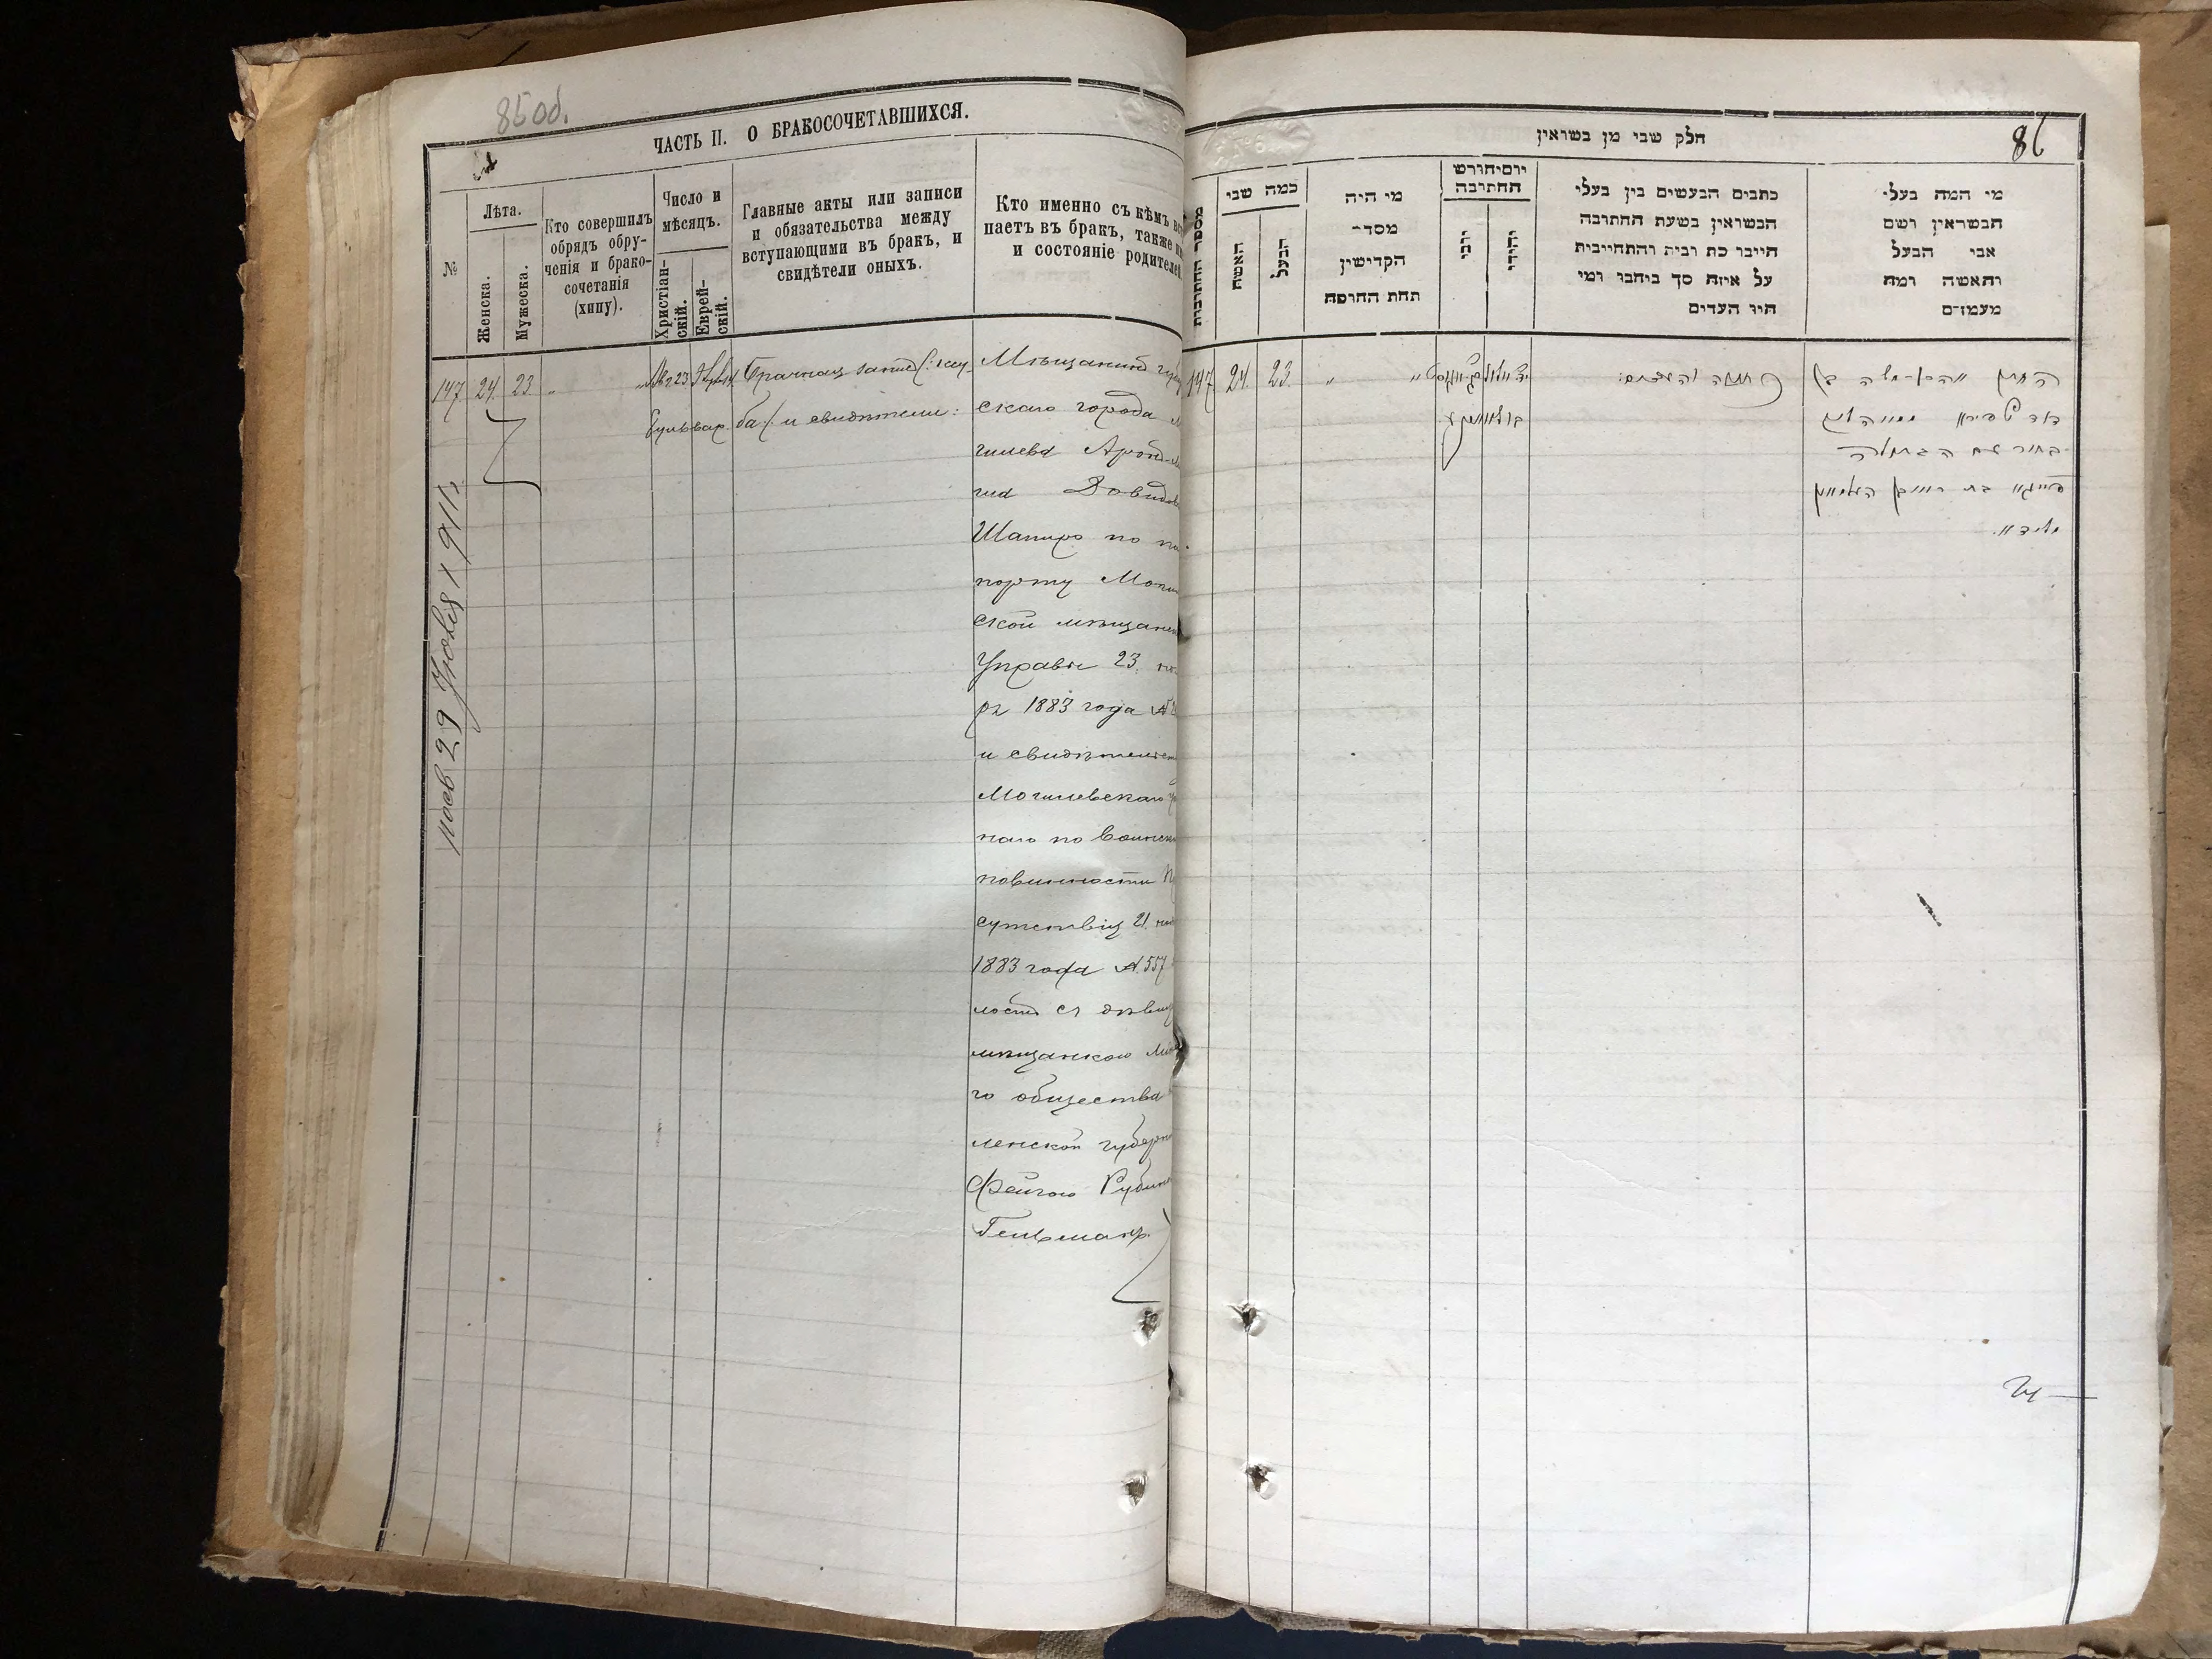 85 об.
ЧАСТЬ II. О БРАКОСОЧЕТАВШИХСЯ.
№
Лѣта.
Женска.
Мужеска.
Кто совершилъ
обрядъ обру-
ченія и брако-
сочетанія
(хипу).
Число и
мѣсяцъ.
Христіан-
скій.
Еврей-
скій.
Главные акты или записи
и обязательства между
вступающими въ бракъ, и
свидѣтели оныхъ.
Кто именно съ кѣмъ вс
паетъ въ бракъ, также и
и состояніе родителе
147
24.
23.
Авг. 23
Брачная запись (: кцу
Бульвар.
ба :) и свидѣтели:
Мѣщанинъ гу
скаго города М
гилева Аронъ-
Довидов
Шапиро по па
порту Моги
ской мѣщанск
Управы 23. но
ря 1883 года №
и свидѣтельст
Могилевскаго у
наго по воинск
повинности П
сутствія 21. но
1883 года №. 557
лостъ съ дѣвиц
мѣщанкою
го общества
ленской губерн
Фейгою Рубино
Гельманъ.
1911 г.
חלק שני מן נשואין
86
מספר החתונות
כמה שני
האשה
הבעל
מי היה
מסדר
הקדישין
תחת החופה
יום וחודש
החתונה
יוני
יהודי
כתבים הנעשים בין בעלי
הנשואין בשעת החתונה
היינו כת וביה והתחייבות
על איזה סך ביחבו ומי
היו העדים
מי המה בעלי
הנשואין ושם
אבי הבעל
והאשה ומה
מעמדם
147
24.
23.
כתובה והעדים:
החתן אהרן-משה בן
דוד שפירא ממאהלוב
בחור עם הבתולה
פייגא בת ראובן העלמאן